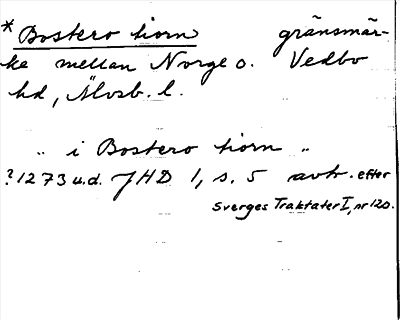 *Bostero tiorn gränsmär-
ke mellan Norge o. Vedbo
hd, Älvsb. l.
„ i Bostero tiorn „
?1273 u.d. JHD 1, s. 5 avtr. efter
Sverges Traktater I, nr 120.